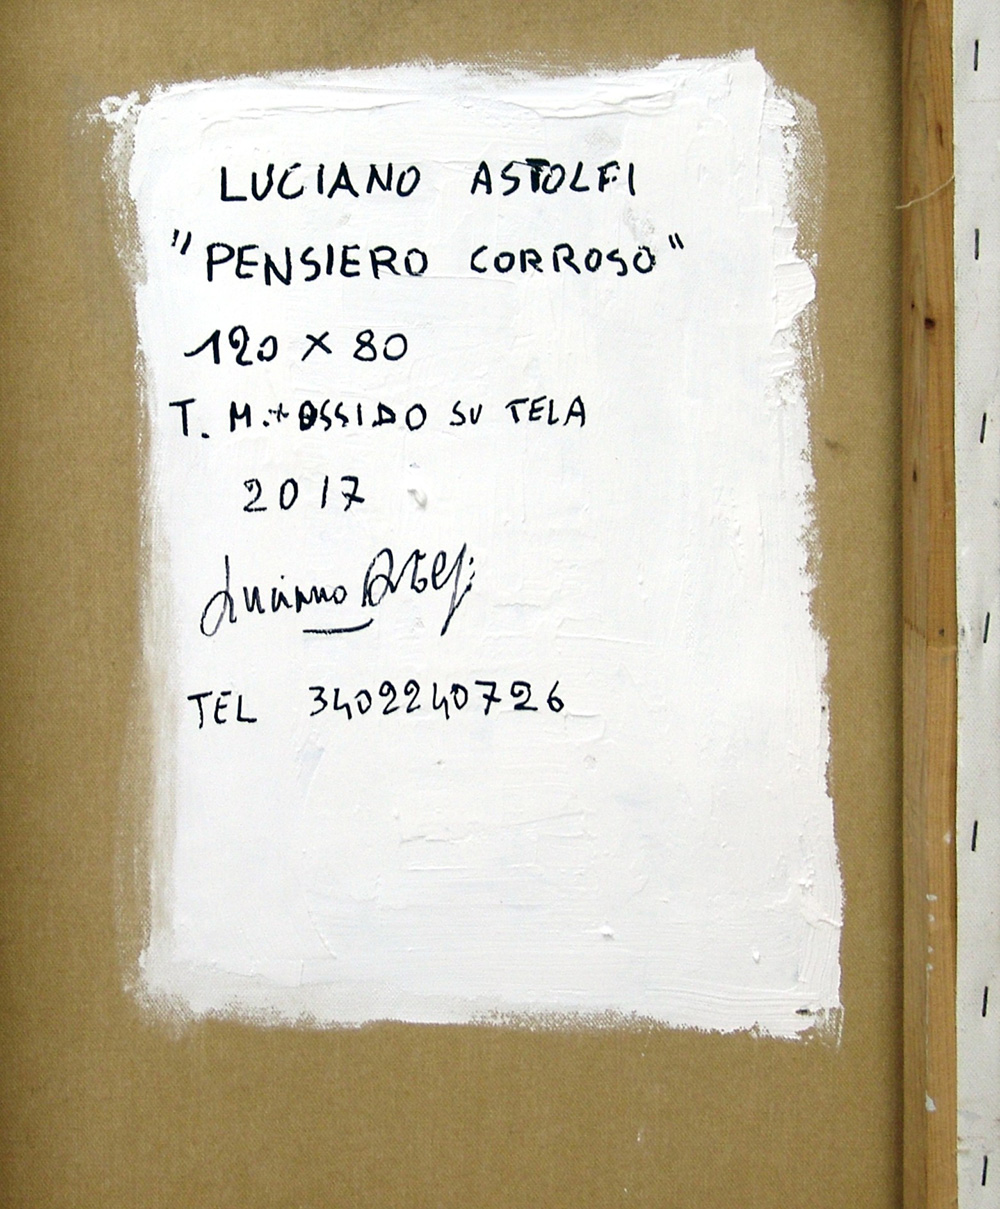 LUCIANO ASTOLFI
"PENSIERO CORROSO"
120 × 80
T. M.+OSSIDO SU TELA
2017
Luciano Astolfi
TEL 3402240726